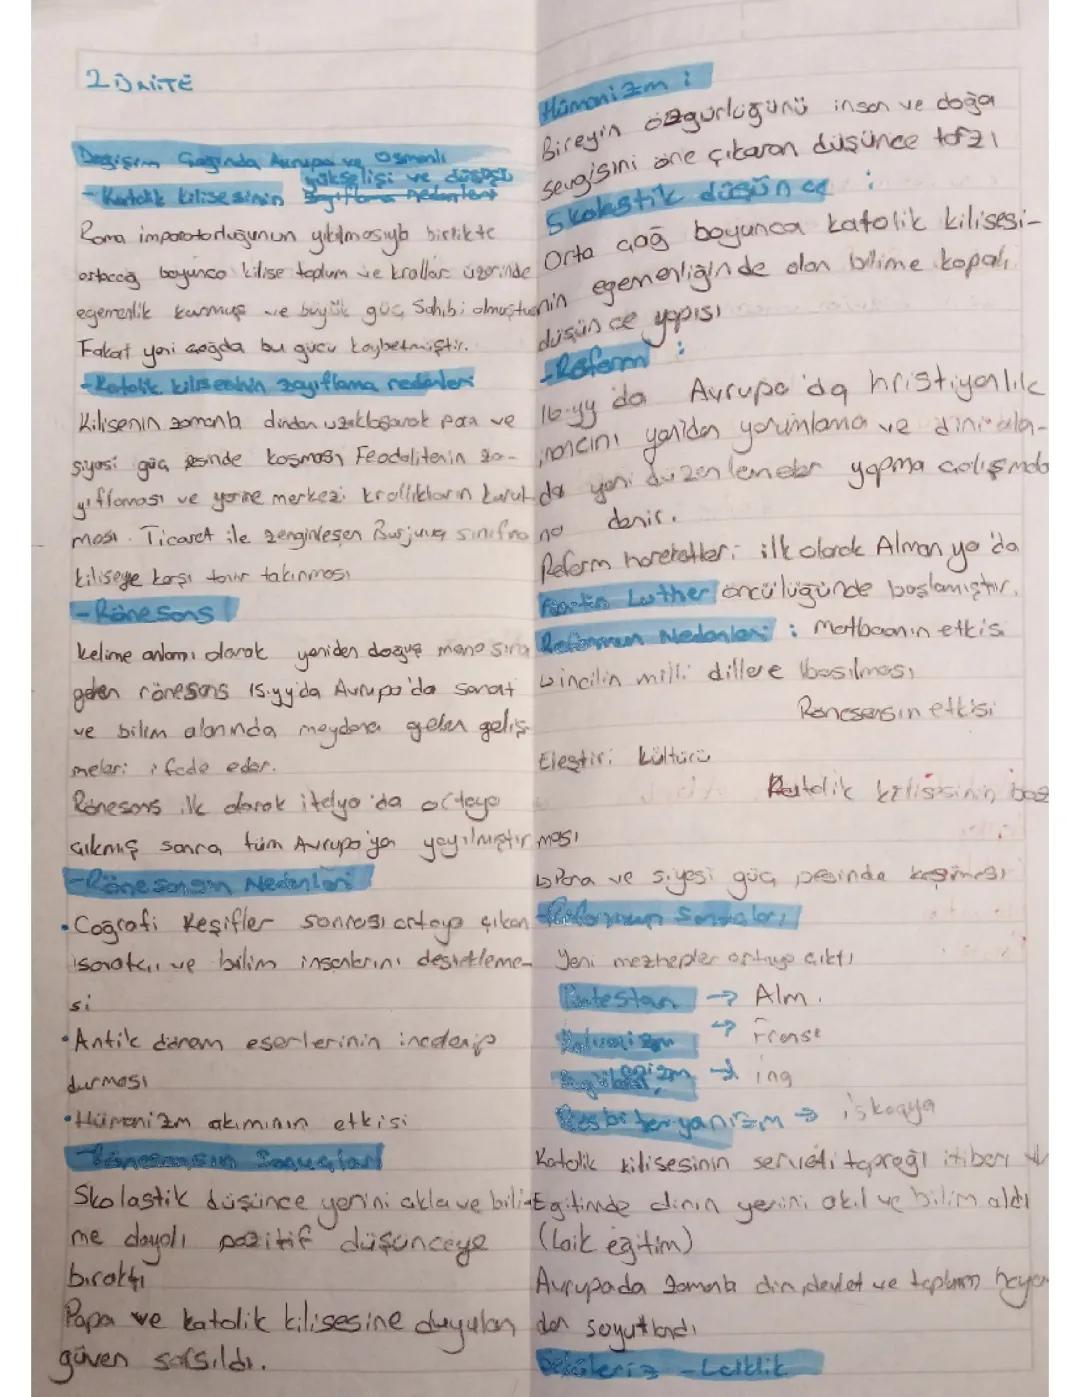 2 ÜNİTE
Değişim Çağında Avrupa ve Osmanlı
- Katolik kilisesinin yükselişi ve düşüşü
Roma imparatorluğunun yıkılmasıyla birlikte
ortaçağ boyunca kilise toplum ve krallar üzerinde
egemenlik kurmuş ve büyük güç Sahibi olmuştur
Fakat yeni çağda bu gücü kaybetmiştir.
- Katolik kilisesinin zayıflama nedenleri
Kilisenin zamanla dinden uzaklaşarak para ve
siyasi güç peşinde koşması Feodalitenin za-
yıflaması ve yerine merkezi krallıkların kurul
ması. Ticaret ile zenginleşen Burjuva sınıfının
kiliseye karşı tavır takınması
- Rönesans
Kelime anlamı olarak yeniden doğuş manasına
gelen rönesans 15.yy'da Avrupa'da sanat
ve bilim alanında meydana gelen geliş-
meleri ifade eder.
Rönesans ilk olarak italya'da ortaya
çıkmış sonra tüm Avrupa'ya yayılmıştır
- Rönesansın Nedenleri
• Coğrafi Keşifler sonrası ortaya çıkan
sanatçı ve bilim insanlarını destekleme-
si
• Antik dönem eserlerinin incelenip
durması
• Hümanizm akımının etkisi
Rönesansın Sonuçları
Skolastik düşünce yerini akla ve bili-
me dayalı pozitif düşünceye
bıraktı
Papa ve katolik kilisesine duyulan
güven sarsıldı.
Hümanizm :
Bireyin özgürlüğünü insan ve doğa
sevgisini öne çıkaran düşünce tarzı
Skolastik düşünce :
Orta çağ boyunca katolik kilisesi-
nin egemenliğinde olan bilime kapalı
düşünce yapısı
- Reform :
16.yy'da Avrupa'da hristiyanlık
inancını yeniden yorumlama ve dini ala-
da yeni düzenlemeler yapma çalışmala
na denir.
Reform hareketleri ilk olarak Almanya'da
Martin Luther öncülüğünde başlamıştır.
Reformun Nedenleri : Matbaanın etkisi
↳ incilin milli dillere basılması
Rönesansın etkisi
Eleştiri kültürü
Katolik kilisesinin boz
ması
↳ Para ve siyasi güç peşinde koşması
- Reformun Sonuçları
Yeni mezhepler ortaya çıktı
Protestan → Alm.
Kalvenizm → Fransa
→ ing
Presbiteryanizm → iskoçya
Katolik kilisesinin serveti toprağı itibarı
Eğitimde dinin yerini akıl ve bilim aldı
(Laik eğitim)
Avrupada zamanla din, devlet ve toplum haya
dan soyutlandı
- Laiklik